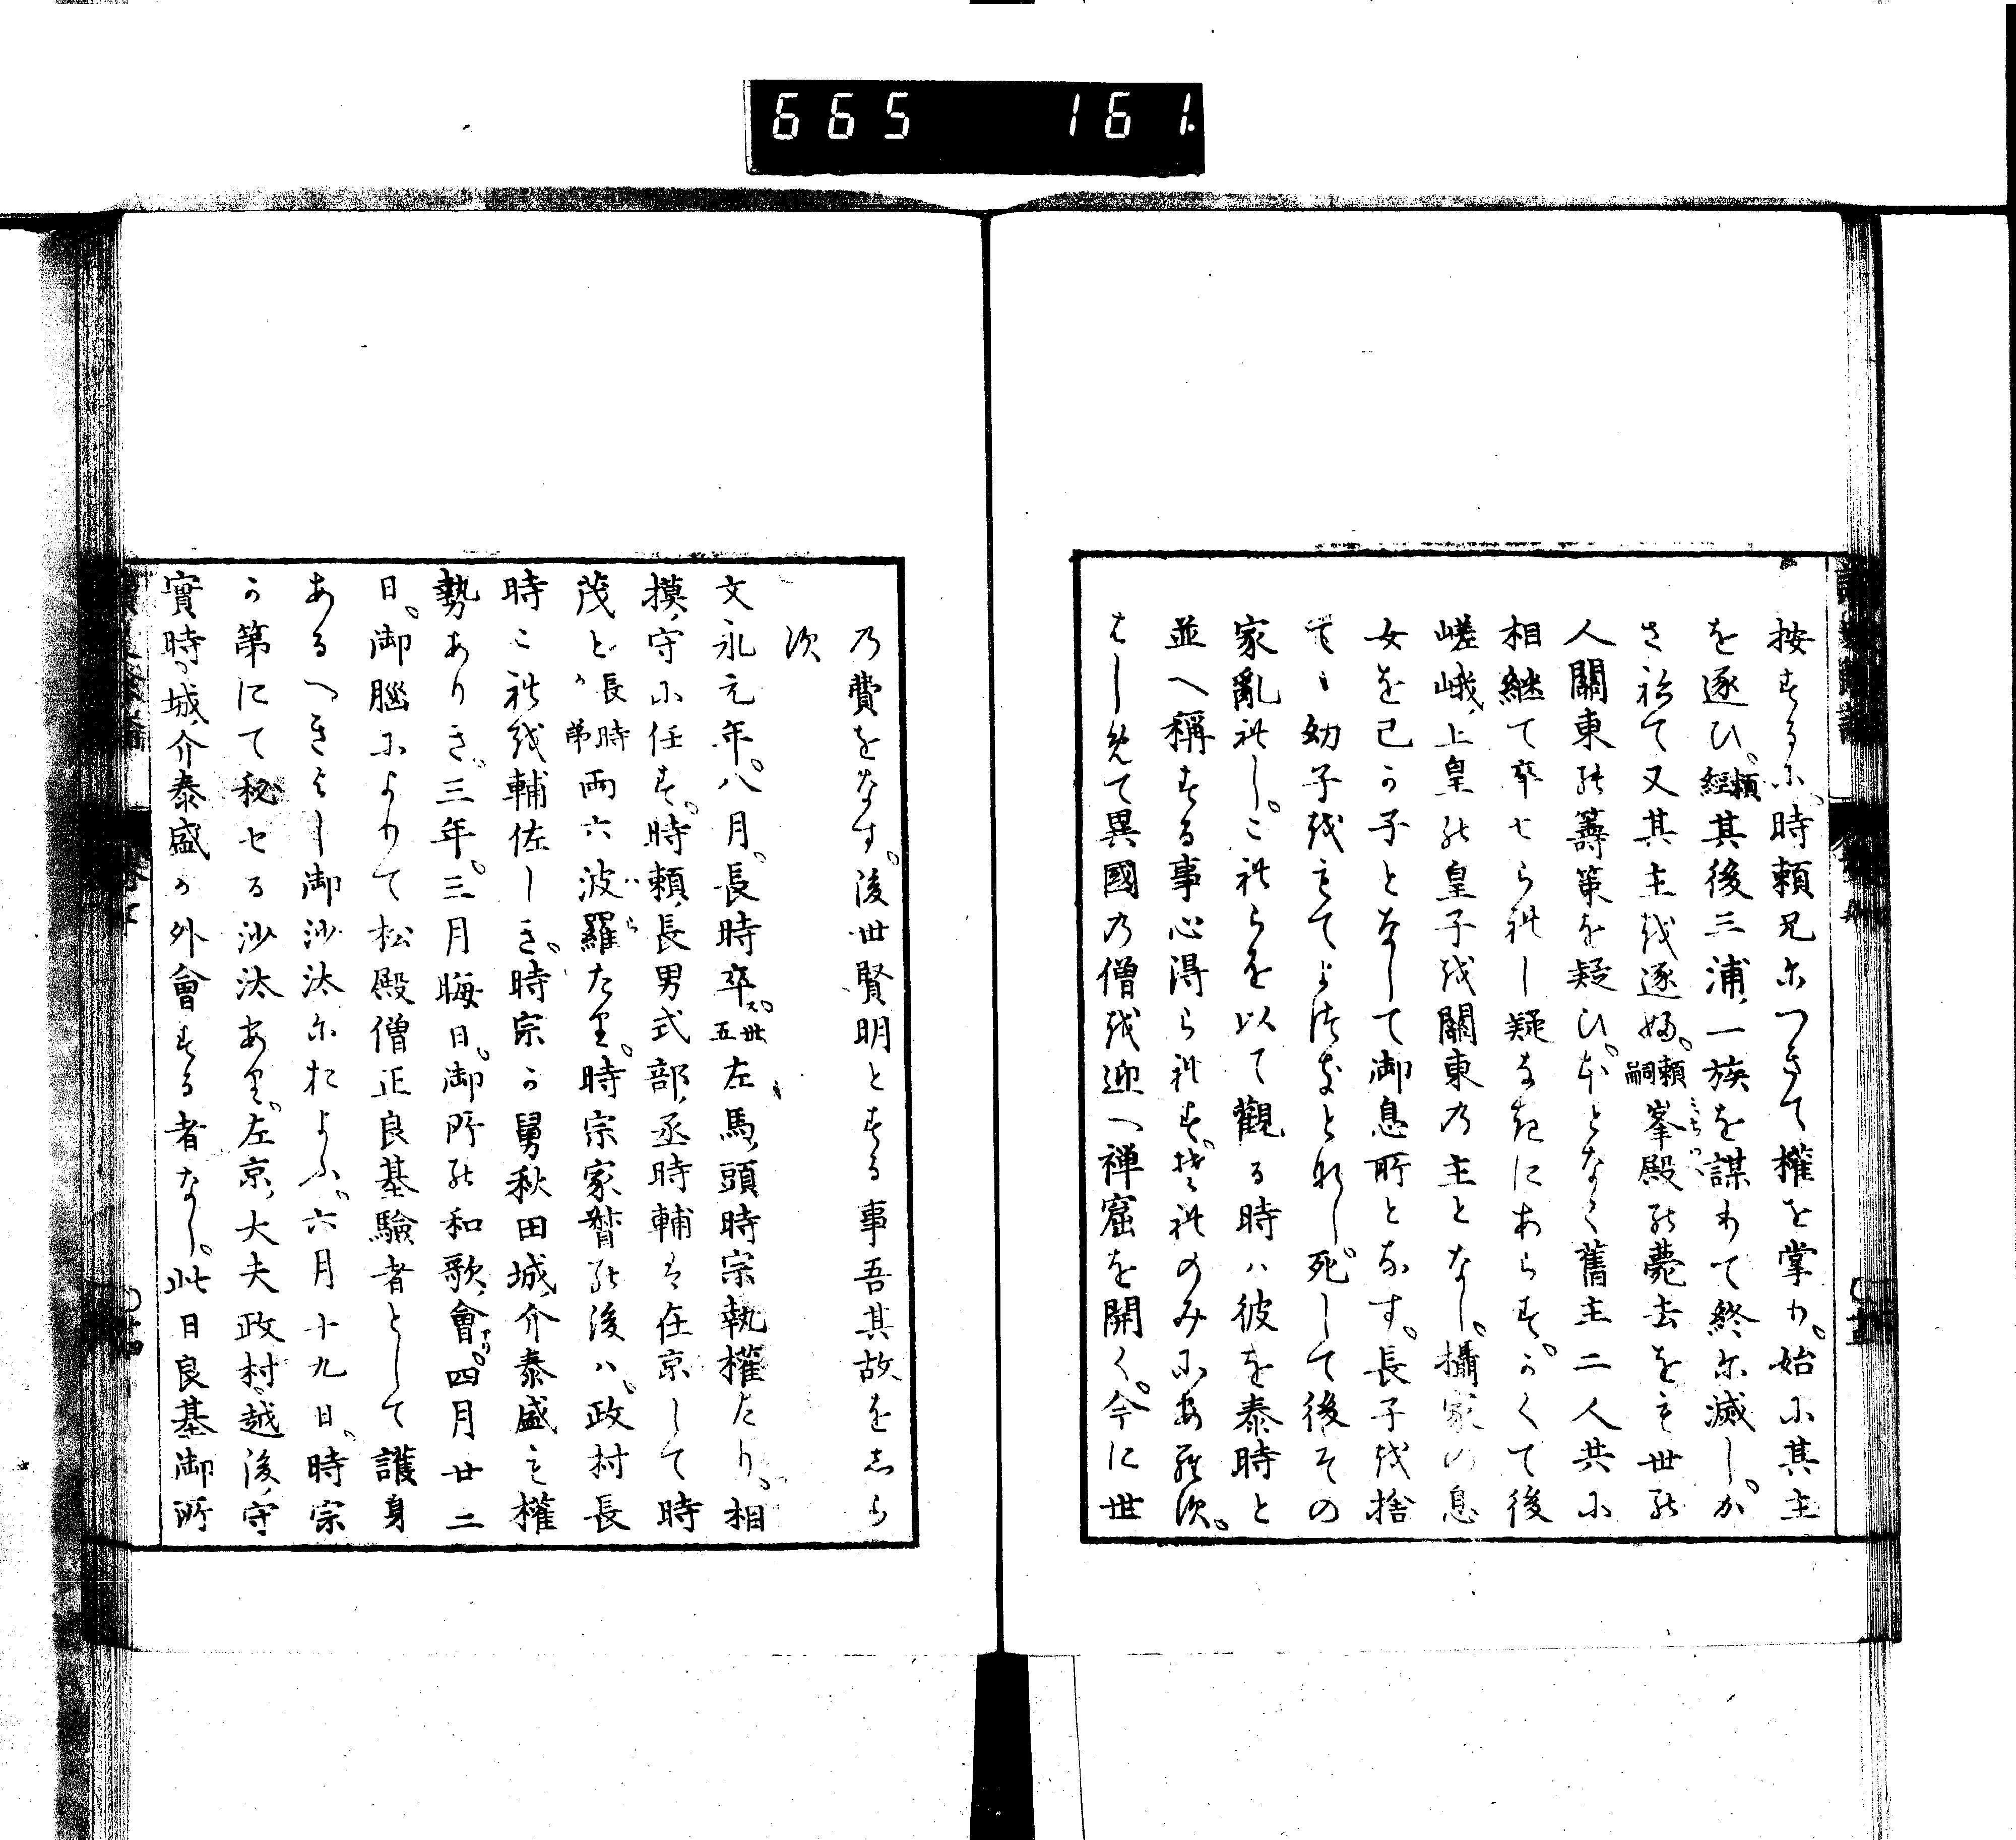 665 161.
按するに時頼兄につきて權を掌り。始に其主
を逐ひ。頼經其後三浦ノ一族を謀りて終に滅し。か
さ祢て又其主を逐ぬ。頼嗣峯殿の薨去をも世の
人關東の籌策を疑ひ。ほとなく舊主二人共に
相継て卒せられし疑なきにあらす。かくて後
嵯峨ノ上皇の皇子を關東の主となし。攝家の息
女を己か子となして御息所となす。長子を捨
てゝ幼子をもてよつきとれし。死して後その
家亂れし。これらを以て觀る時ハ彼を泰時と
並へ稱する事心得られす。それのみにあらす。
はしめて異國の僧を迎へ禅窟を開く。今に世
の費をなす。後世賢明とする事吾其故をしら
す
文永元年。八月。長時卒ス。卅五左馬ノ頭時宗執權たり。相
摸ノ守に任す。時頼ノ長男式部ノ丞時輔は在京して時
茂と長時か弟両六波羅たり。時宗家督の後ハ。政村長
時これを輔佐しき。時宗か舅秋田城ノ介泰盛も權
勢ありき。三年。三月晦日。御所の和歌ノ會アリ。四月廿二
日。御腦によりて松殿僧正良基驗者として護身
あるへきよし御沙汰におよふ。六月十九日。時宗
か第にて秘せる沙汰あり。左京ノ大夫政村越後ノ守
實時城ノ介泰盛か外會する者なし。此日良基御所